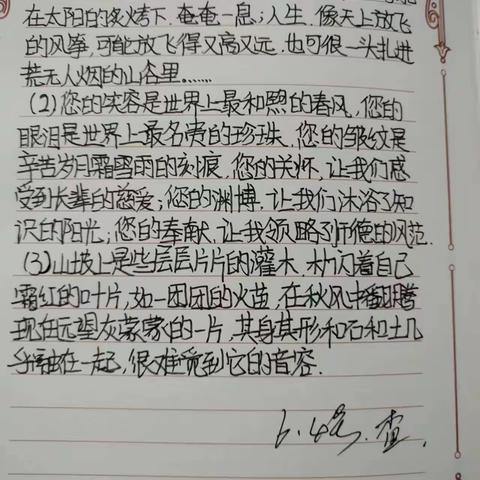 在太阳的炙烤下,奄奄一息;人生,像天上放飞
的风筝,可能放飞得又高又远,也可很一头扎进
荒无人烟的山谷里.......
(2)您的笑容是世界上最和煦的春风,您的
眼泪是世界上最名贵的珍珠,您的皱纹是
辛苦岁月霜雪雨的刻痕,您的关怀,让我们感
受到长辈的慈爱;您的渊博,让我们沐浴了知
识的阳光;您的奉献,让我领略了师德的风范.
(3)山坡上是些层层片片的灌木,闪着自己
霜红的叶片,如一团团的火苗,在秋风中翻腾
现在远望灰蒙蒙的一片,其身其形和石和土几
乎融在一起,很难觅到它的音容.
6.
查.